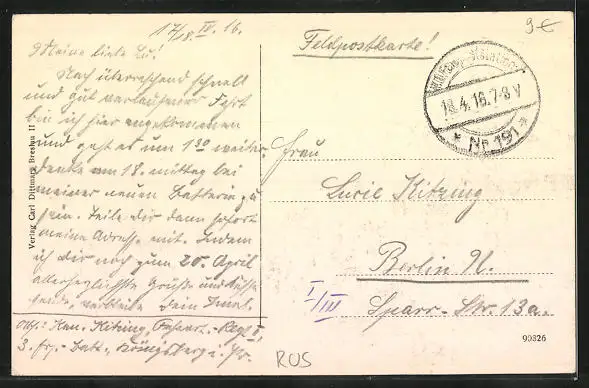 17/18. IV. 16.
Meine liebe Lu!
Nach überraschend schnell
und gut verlaufener Fahrt
bin ich hier angekommen
und geht es um 1 30 weiter.
denke am 18. mittag bei
meiner neuen Batterie zu
sein. Teile Dir dann sofort
meine Adresse mit. Indem
ich Dir noch zum 20. April
allerherzlichste Grüße und Küsse
sende, verbleibe Dein
Abs.: Kan. Kitzing, Regt. II,
3. Batt., Königsberg i. Pr.
Verlag Carl Dittmars Breslau II
Feldpostkarte!
9€
18.4.16.7-8 V
* Nr. 191 *
Frau
Lucie Kitzing
Berlin N.
I/III
Sparr-Str. 13a.
90826
RUS